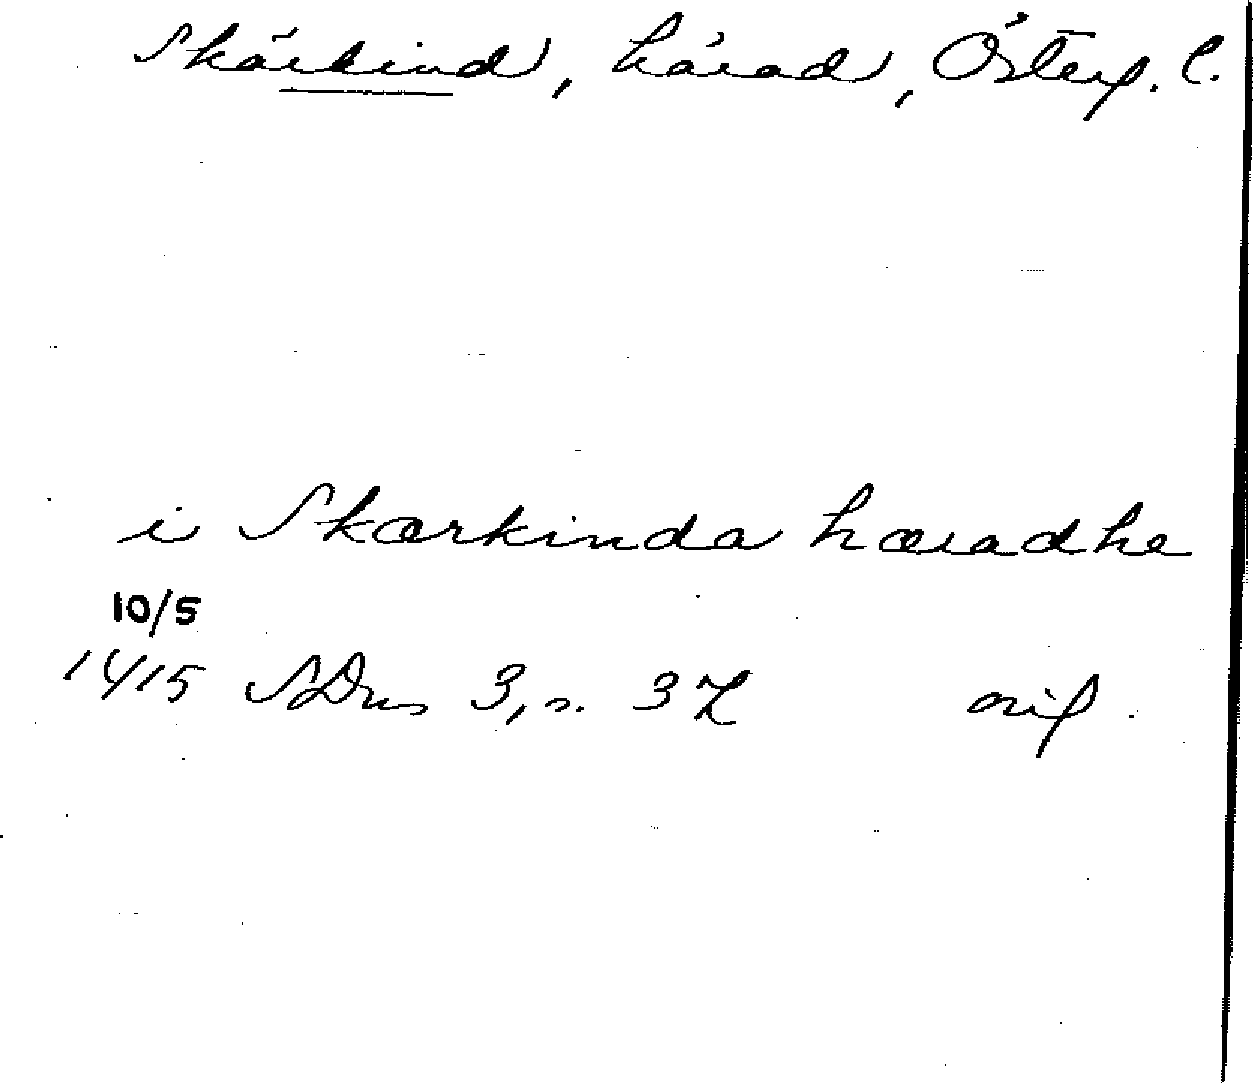 Skärkind, härad, Österg. l.
i Skærkinda hæradhe
10/5
1415 SDns 3, s. 37 orig.